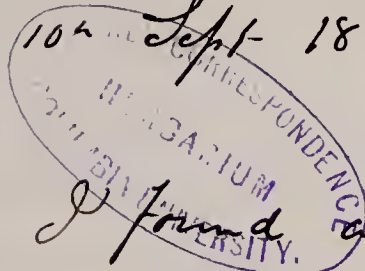 10th Sept 18
CORRESPONDENCE
HERBARIUM
COLUMBIA UNIVERSITY.
I found a